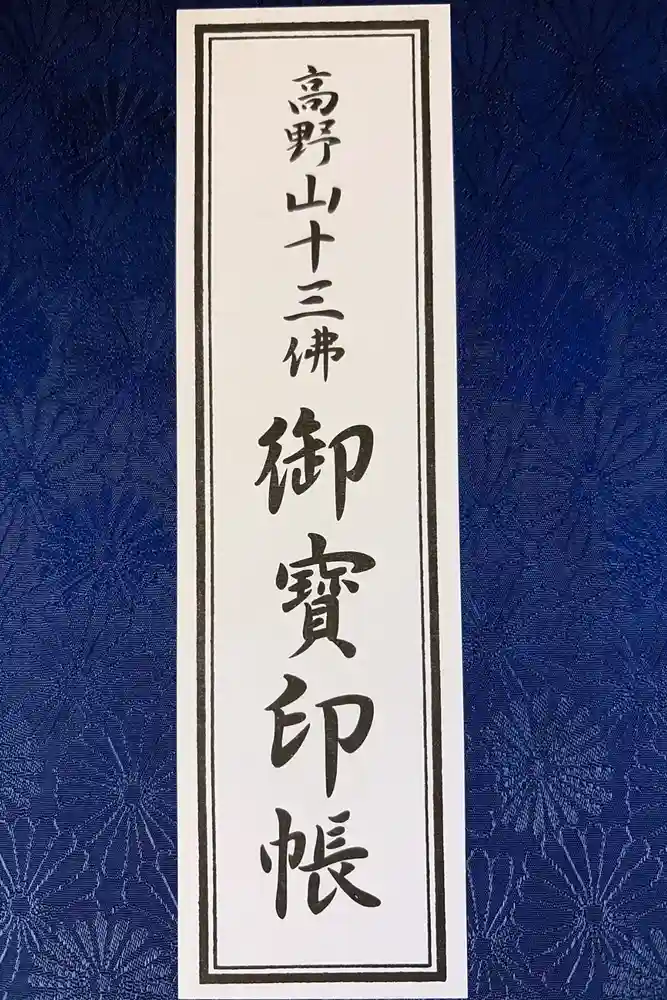 高野山十三佛御寶印帳